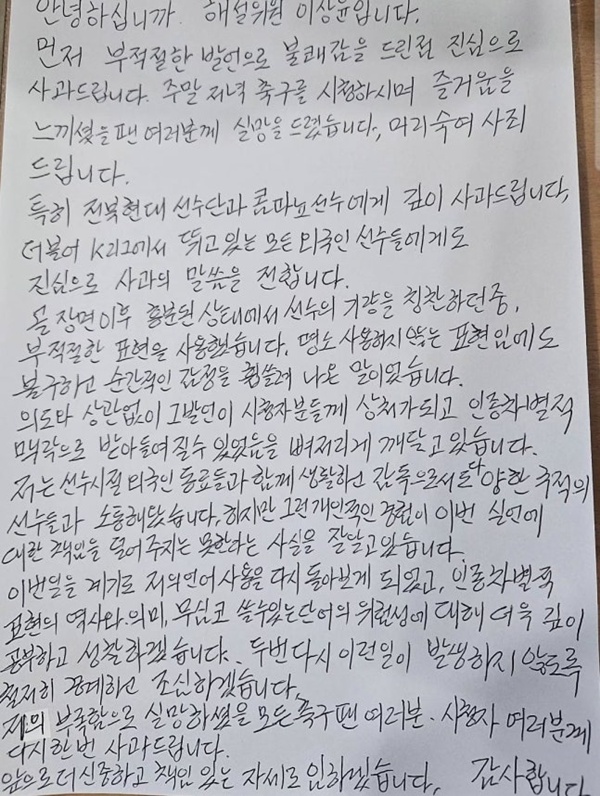 안녕하십니까. 해설위원 이상윤입니다.
먼저 부적절한 발언으로 불쾌감을 드린점 진심으로
사과드립니다. 주말 저녁 축구를 시청하시며 즐거움을
느끼셨을 팬 여러분께 실망을 드렸습니다, 머리숙여 사죄
드립니다.
특히 전북현대 선수단과 콤파뇨선수에게 깊이 사과드립니다,
더불어 K리그에서 뛰고있는 모든 외국인 선수들에게도
진심으로 사과의 말씀을 전합니다.
골 장면이후 흥분된 상태에서 선수의 기량을 칭찬하던중,
부적절한 표현을 사용했습니다. 평소 사용하지 않는 표현임에도
불구하고 순간적인 감정을 휩쓸려 나온 말이었습니다.
의도와 상관없이 그발언이 시청자분들께 상처가되고 인종차별적
맥락으로 받아들여질수 있었음을 뼈저리게 깨닫고 있습니다.
저는 선수시절 외국인 동료들과 함께 생활하고 감독으로서도 다양한 국적의
선수들과 소통해왔습니다, 하지만 그런 개인적인 경험이 이번 실언에
대한 책임을 덜어주지는 못한다는 사실을 잘알고있습니다.
이번일을 계기로 저의언어 사용을 다시 돌아보게 되었고, 인종차별적
표현의 역사와 의미, 무심코 쓸수있는단어의 위험성에 대해 더욱 깊이
공부하고 성찰하겠습니다. 두번다시 이런일이 발생하지 않도록
철저히 경계하고 조심하겠습니다.
저의 부족함으로 실망하셨을 모든축구팬 여러분. 시청자 여러분께
다시한번 사과드립니다.
앞으로더신중하고 책임 있는 자세로 임하겠습니다, 감사합니다